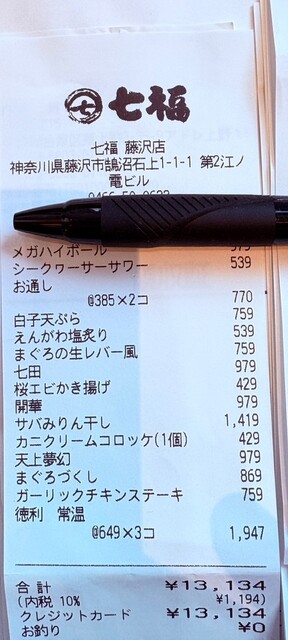 七 七福
七福 藤沢店
神奈川県藤沢市鵠沼石上1-1-1 第2江ノ
電ビル
メガハイボール
シークヮーサーサワー 539
お通し
@385×2コ 770
白子天ぷら 759
えんがわ塩炙り 539
まぐろの生レバー風 759
七田 979
桜エビかき揚げ 429
開華 979
サバみりん干し 1,419
カニクリームコロッケ(1個) 429
天上夢幻 979
まぐろづくし 869
ガーリックチキンステーキ 759
徳利 常温
@649×3コ 1,947
合計 ¥13,134
(内税 10% ¥1,194)
クレジットカード ¥13,134
お釣り ¥0